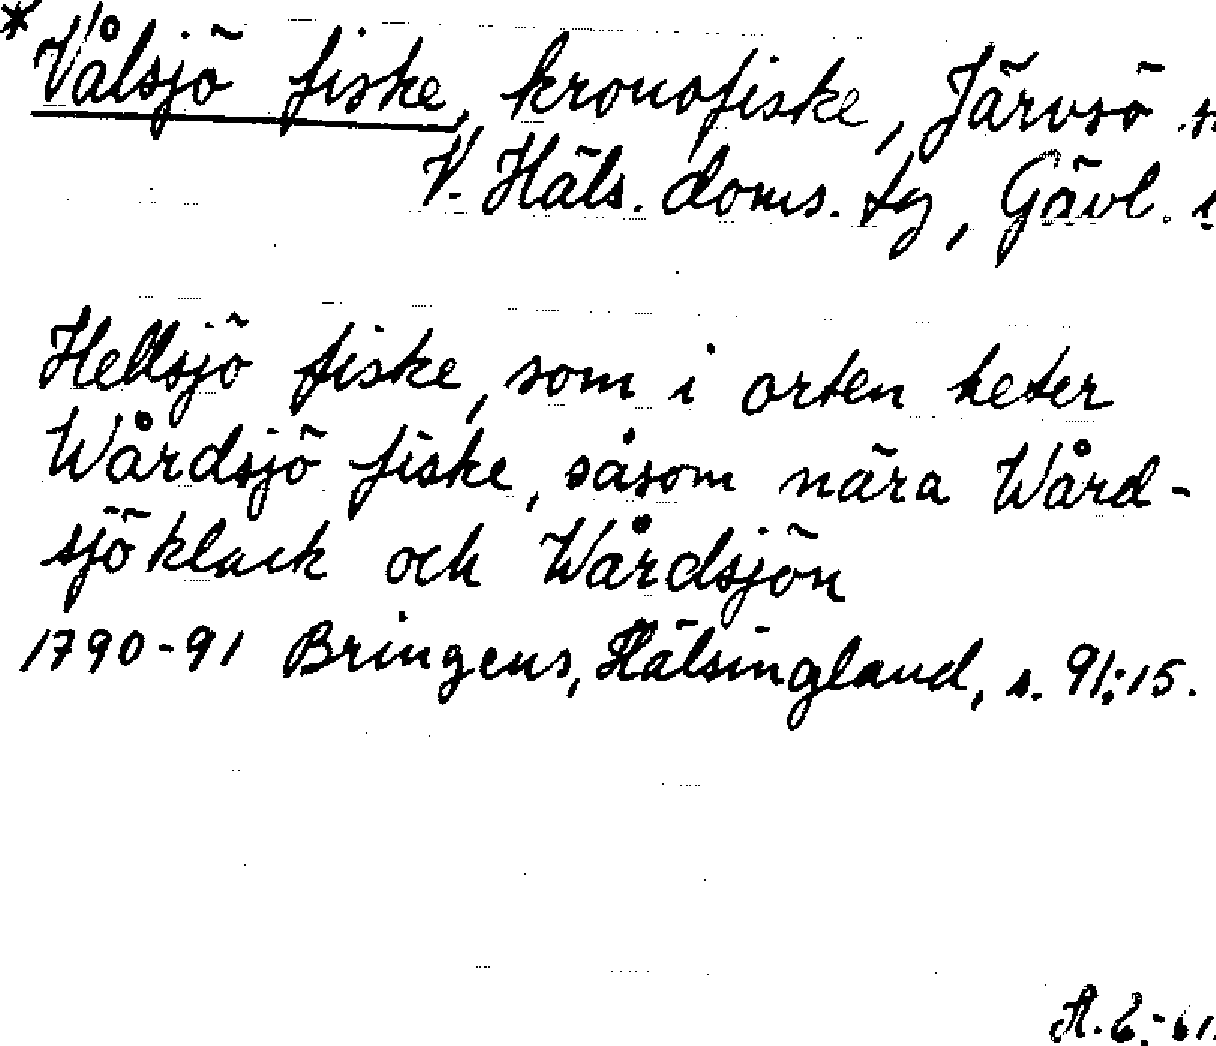 * Vålsjö fiske, kronofiske, Järvsö
V. Häls. doms. tg, Gävl.
Hellsjö fiske, som i orten heter
Wårdsjö fiske, såsom nära Wård-
sjöklack och Wårdsjön
1790-91 Bringéus, Hälsingland, s. 91:15.
A.E.-61.